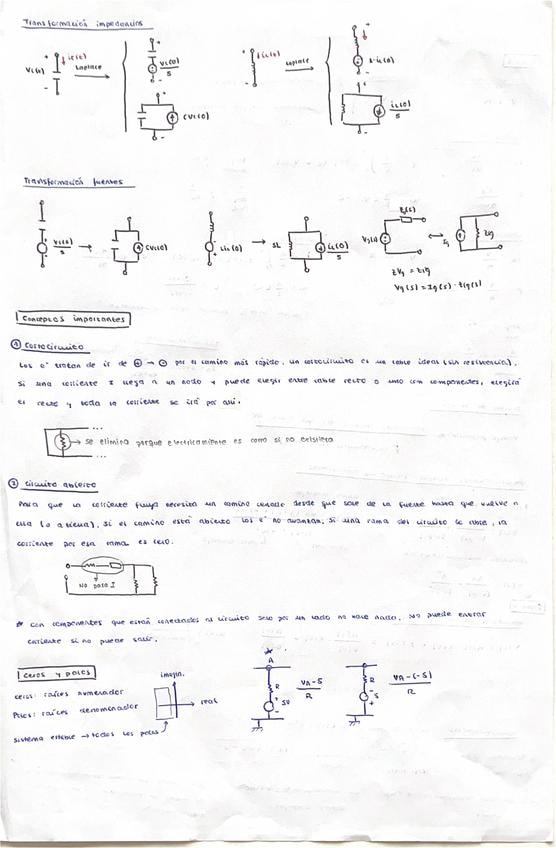 Transformación impedancias
+ ic(0)
Vc(0)
-
Laplace
+
Vc(0)/S
-
+
CVc(0)
-
iL(0)
Laplace
+
L·iL(0)
-
+
iL(0)/S
-
Transformación fuentes
Vc(0)/S → CVc(0)
LiL(0) → SL iL(0)/S
Vg(s) Zg(s) ↔ Ig Zg
Vg(s) = Ig(s) · Zg(s)
Conceptos importantes
1 Cortocircuito
Los e⁻ tratan de ir de ⊕ → ⊖ por el camino más rápido. Un cortocircuito es un cable ideal (sin resistencia).
Si una corriente I llega a un nodo y puede elegir entre cable recto o uno con componentes, elegirá
el recto y toda la corriente se irá por ahí.
→ se elimina porque eléctricamente es como si no existiera
2 Circuito abierto
Para que la corriente fluya necesita un camino cerrado desde que sale de la fuente hasta que vuelve a
ella (o a tierra). Si el camino está abierto los e⁻ no avanzan. Si una rama del circuito se abre, la
corriente por esa rama es cero.
No pasa I
* Con componentes que están conectados al circuito solo por un lado no hace nada. No puede entrar
corriente si no puede salir.
Ceros y polos
Ceros: raíces numerador
Polos: raíces denominador
Sistema estable → todos los polos
imagin.
real
A
R
+
5V
-
VA-5/R
R
-
5
+
VA-(-5)/R